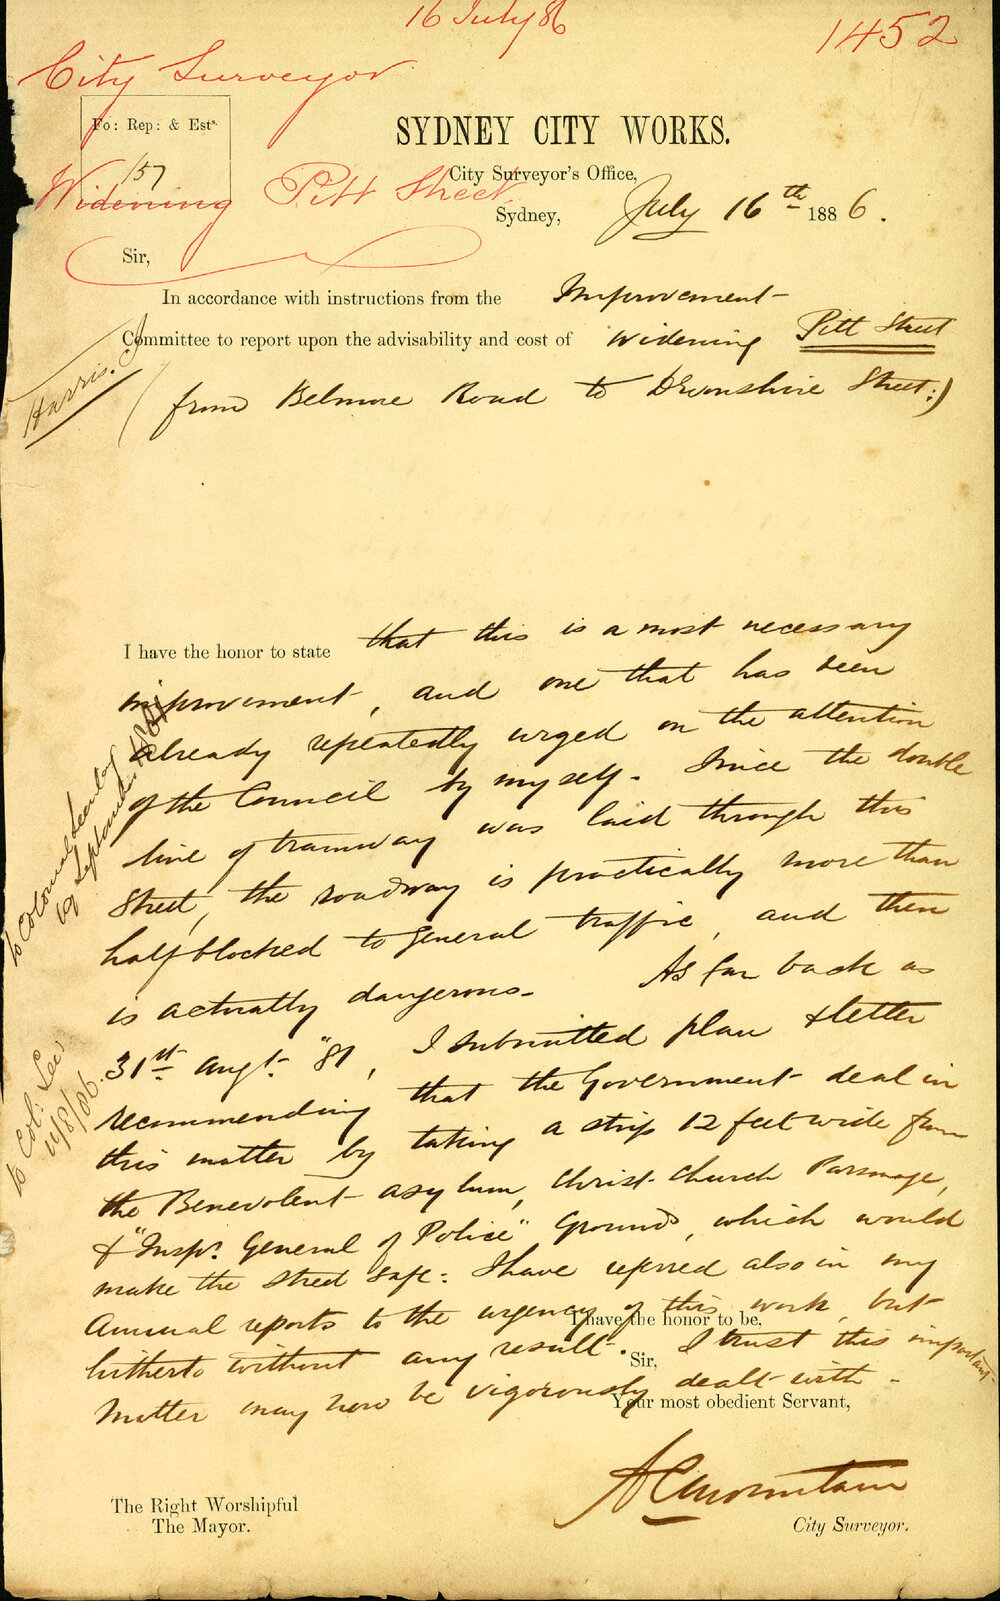 16 July 86
1452
City Surveyor
Fo: Rep: & Ests.
157
Widening Pitt Street
SYDNEY CITY WORKS.
City Surveyor's Office,
Sydney, July 16th 1886.
Sir,
In accordance with instructions from the Improvement
Committee to report upon the advisability and cost of widening Pitt Street
(from Belmore Road to Devonshire Street:)
Harris. J
I have the honor to state that this is a most necessary
improvement, and one that has been
already repeatedly urged on the attention
of the Council by myself. Since the double
line of tramway was laid through this
Street, the roadway is practically more than
half blocked to general traffic, and then
is actually dangerous. As far back as
31st Augt. "81, I submitted plan & letter
recommending that the Government deal in
this matter by taking a strip 12 feet wide from
the Benevolent Asylum, Christ Church Parsonage,
& "Inspr. General of Police" Grounds, which would
make the street safe. I have referred also in my
Annual reports to the urgency of this work, but
hitherto without any result. I trust this important
matter may now be vigorously dealt with.
to Colonial Secretary
19 September
to Col: Sec
11/8/86
I have the honor to be,
Sir,
Your most obedient Servant,
A C Mountain
City Surveyor.
The Right Worshipful
The Mayor.